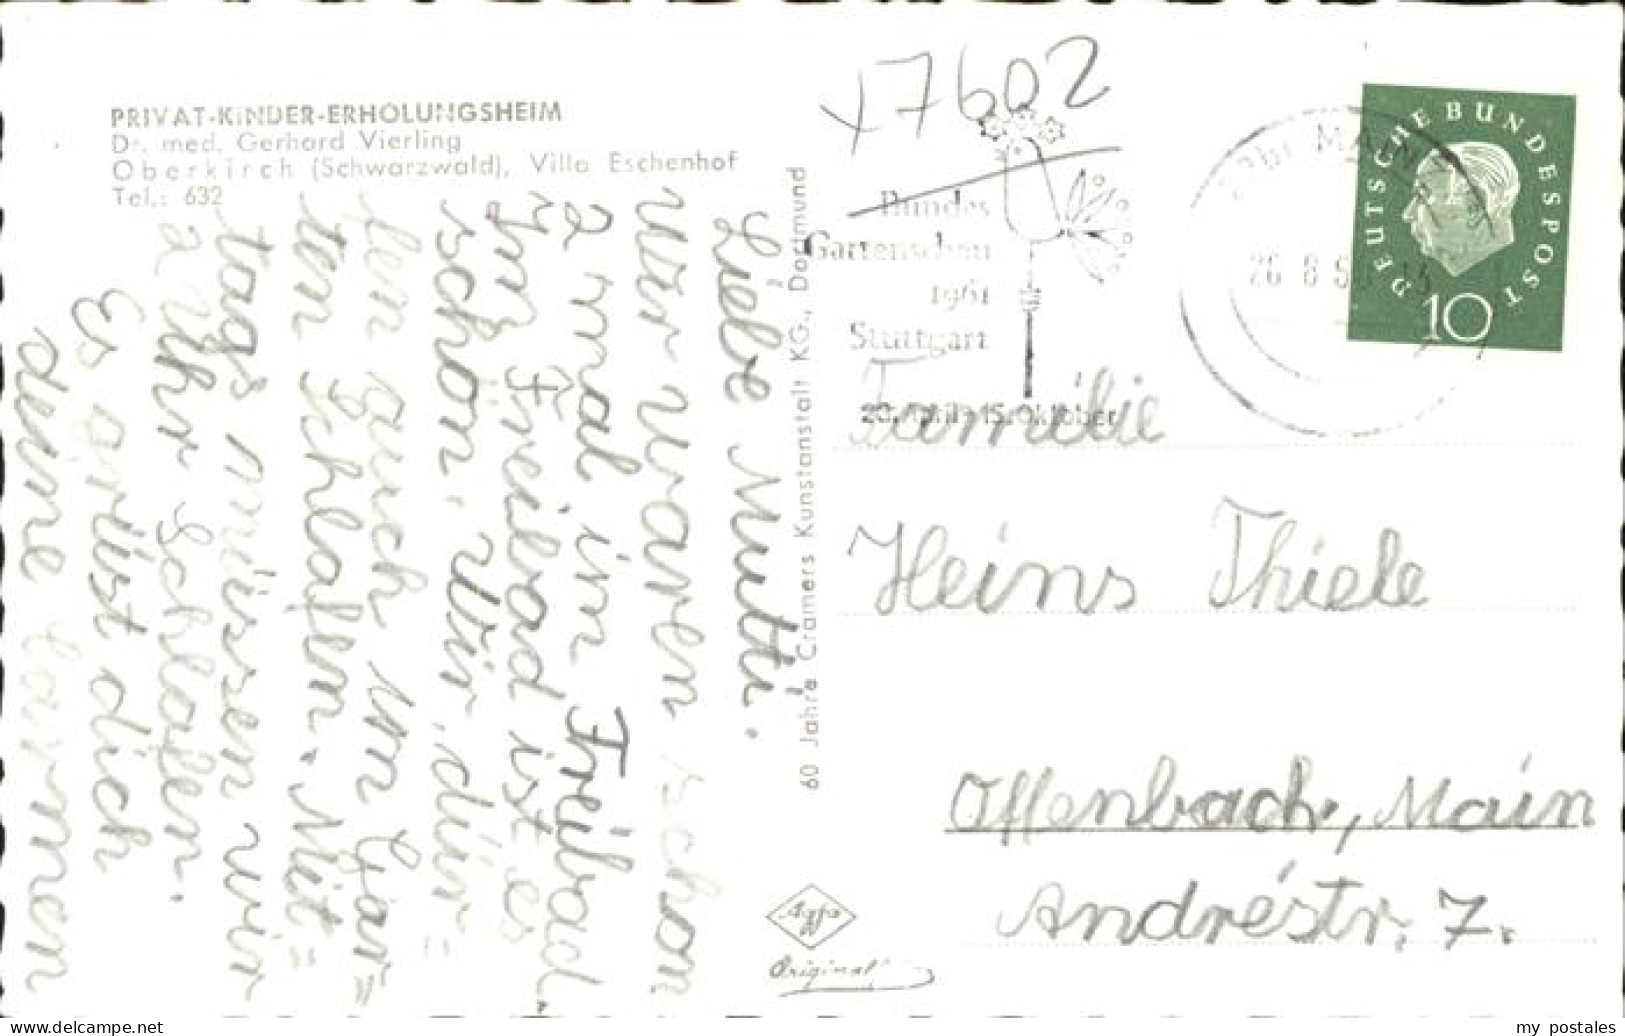 PRIVAT-KINDER-ERHOLUNGSHEIM
Dr. med. Gerhard Vierling
Oberkirch (Schwarzwald), Villa Eschenhof
Tel.: 632
Liebe Mutti.
Wir waren schon
2 mal in Freibad.
Im Freibad ist es
schön. Wir dür=
fen auch im Gar=
ten schlafen. Mit=
tags müssen wir
2 Uhr schlafen.
Es grüst dich
deine Carmen
60 Jahre Cramers Kunstanstalt KG., Dortmund
17602
Bundes
Gartenschau
1961
Stuttgart
20. April - 15. Oktober
MAINZ
26 8
DEUTSCHE BUNDESPOST
10
Familie
Heins Thiele
Offenbach, Main
Andréstr. 7.
Agfa
Original
my postales